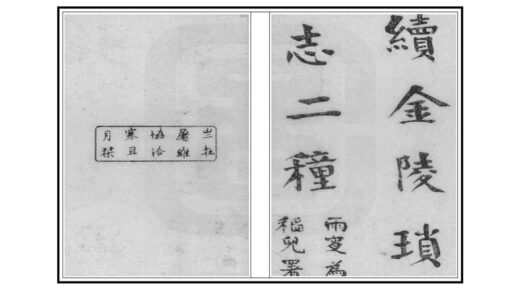 續金陵瑣
志二種
雨叟為
稻兒署
亗在
屠維
協洽
塞且
月栞